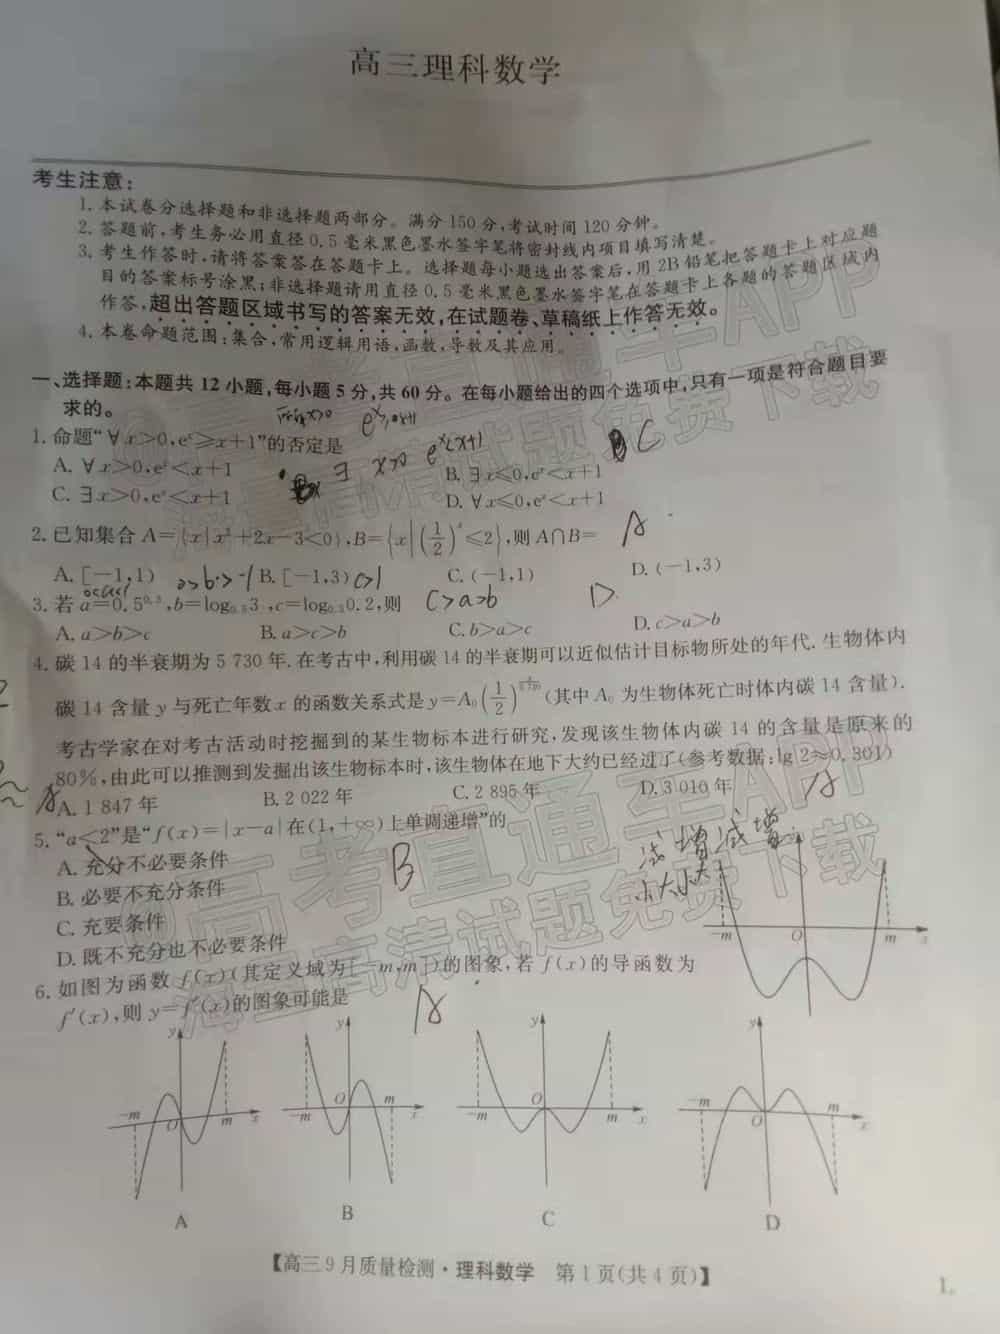 高三理科数学
考生注意:
1. 本试卷分选择题和非选择题两部分。满分150分,考试时间120分钟。
2. 答题前,考生务必用直径0.5毫米黑色墨水签字笔将密封线内项目填写清楚。
3. 考生作答时,请将答案答在答题卡上。选择题每小题选出答案后,用2B铅笔把答题卡上对应题
目的答案标号涂黑;非选择题请用直径0.5毫米黑色墨水签字笔在答题卡上各题的答题区域内
作答,超出答题区域书写的答案无效,在试题卷、草稿纸上作答无效。
4. 本卷命题范围:集合,常用逻辑用语,函数,导数及其应用。
一、选择题:本题共12小题,每小题5分,共60分。在每小题给出的四个选项中,只有一项是符合题目要
求的。
1. 命题“∀x>0,eˣ≥x+1”的否定是
∃ x>0 eˣ<x+1
C
A. ∀x>0,eˣ<x+1 B. ∃x≤0,eˣ<x+1
C. ∃x>0,eˣ<x+1 D. ∀x≤0,eˣ<x+1
2. 已知集合A={x|x²+2x-3<0},B={x|(1/2)ˣ≤2},则A∩B=
A
A. [-1,1) B. [-1,3) C. (-1,1) D. (-1,3)
c>1
3. 若a=0.5^0.3,b=log₀.₅3,c=log₀.₃0.2,则
c>a>b
D
A. a>b>c B. a>c>b C. b>a>c D. c>a>b
4. 碳14的半衰期为5 730年. 在考古中,利用碳14的半衰期可以近似估计目标物所处的年代. 生物体内
碳14含量y与死亡年数x的函数关系式是y=A₀(1/2)^(x/5 730)(其中A₀为生物体死亡时体内碳14含量).
考古学家在对考古活动时挖掘到的某生物标本进行研究,发现该生物体内碳14的含量是原来的
80%,由此可以推测到发掘出该生物标本时,该生物体在地下大约已经过了(参考数据:lg 2≈0.301)
A
A. 1 847年 B. 2 022年 C. 2 895年 D. 3 010年
A
5. “a<2”是“f(x)=|x-a|在(1,+∞)上单调递增”的
B
A. 充分不必要条件
B. 必要不充分条件
C. 充要条件
D. 既不充分也不必要条件
减增减增
小大小大
-m O m x
6. 如图为函数f(x)(其定义域为[-m,m])的图象,若f(x)的导函数为
f′(x),则y=f′(x)的图象可能是
A
y y y y
-m O m x -m O m x -m O m x -m O m x
A B C D
【高三9月质量检测·理科数学 第1页(共4页)】
1.
@高考直通车APP
海量高清试题免费下载
@高考直通车APP
海量高清试题免费下载